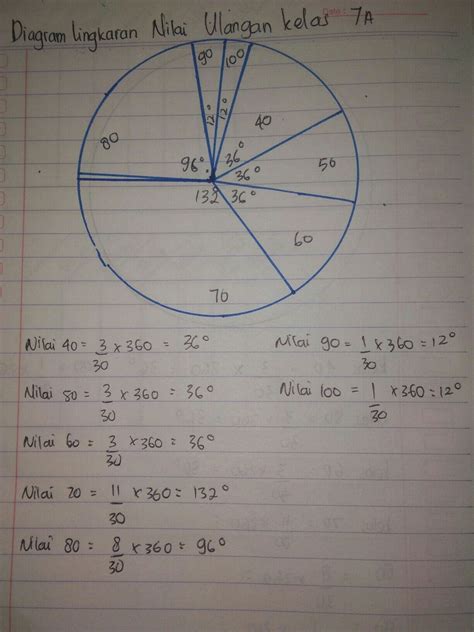 Diagram lingkaran Nilai Ulangan kelas 7A
90
100
80
12°
12°
40
96°
36°
36°
50
132
36°
60
70
Nilai 40 = 3/30 x 360 = 36°
Nilai 90 = 1/30 x 360 = 12°
Nilai 50 = 3/30 x 360 = 36°
Nilai 100 = 1/30 x 360 = 12°
Nilai 60 = 3/30 x 360 = 36°
Nilai 70 = 11/30 x 360 = 132°
Nilai 80 = 8/30 x 360 = 96°